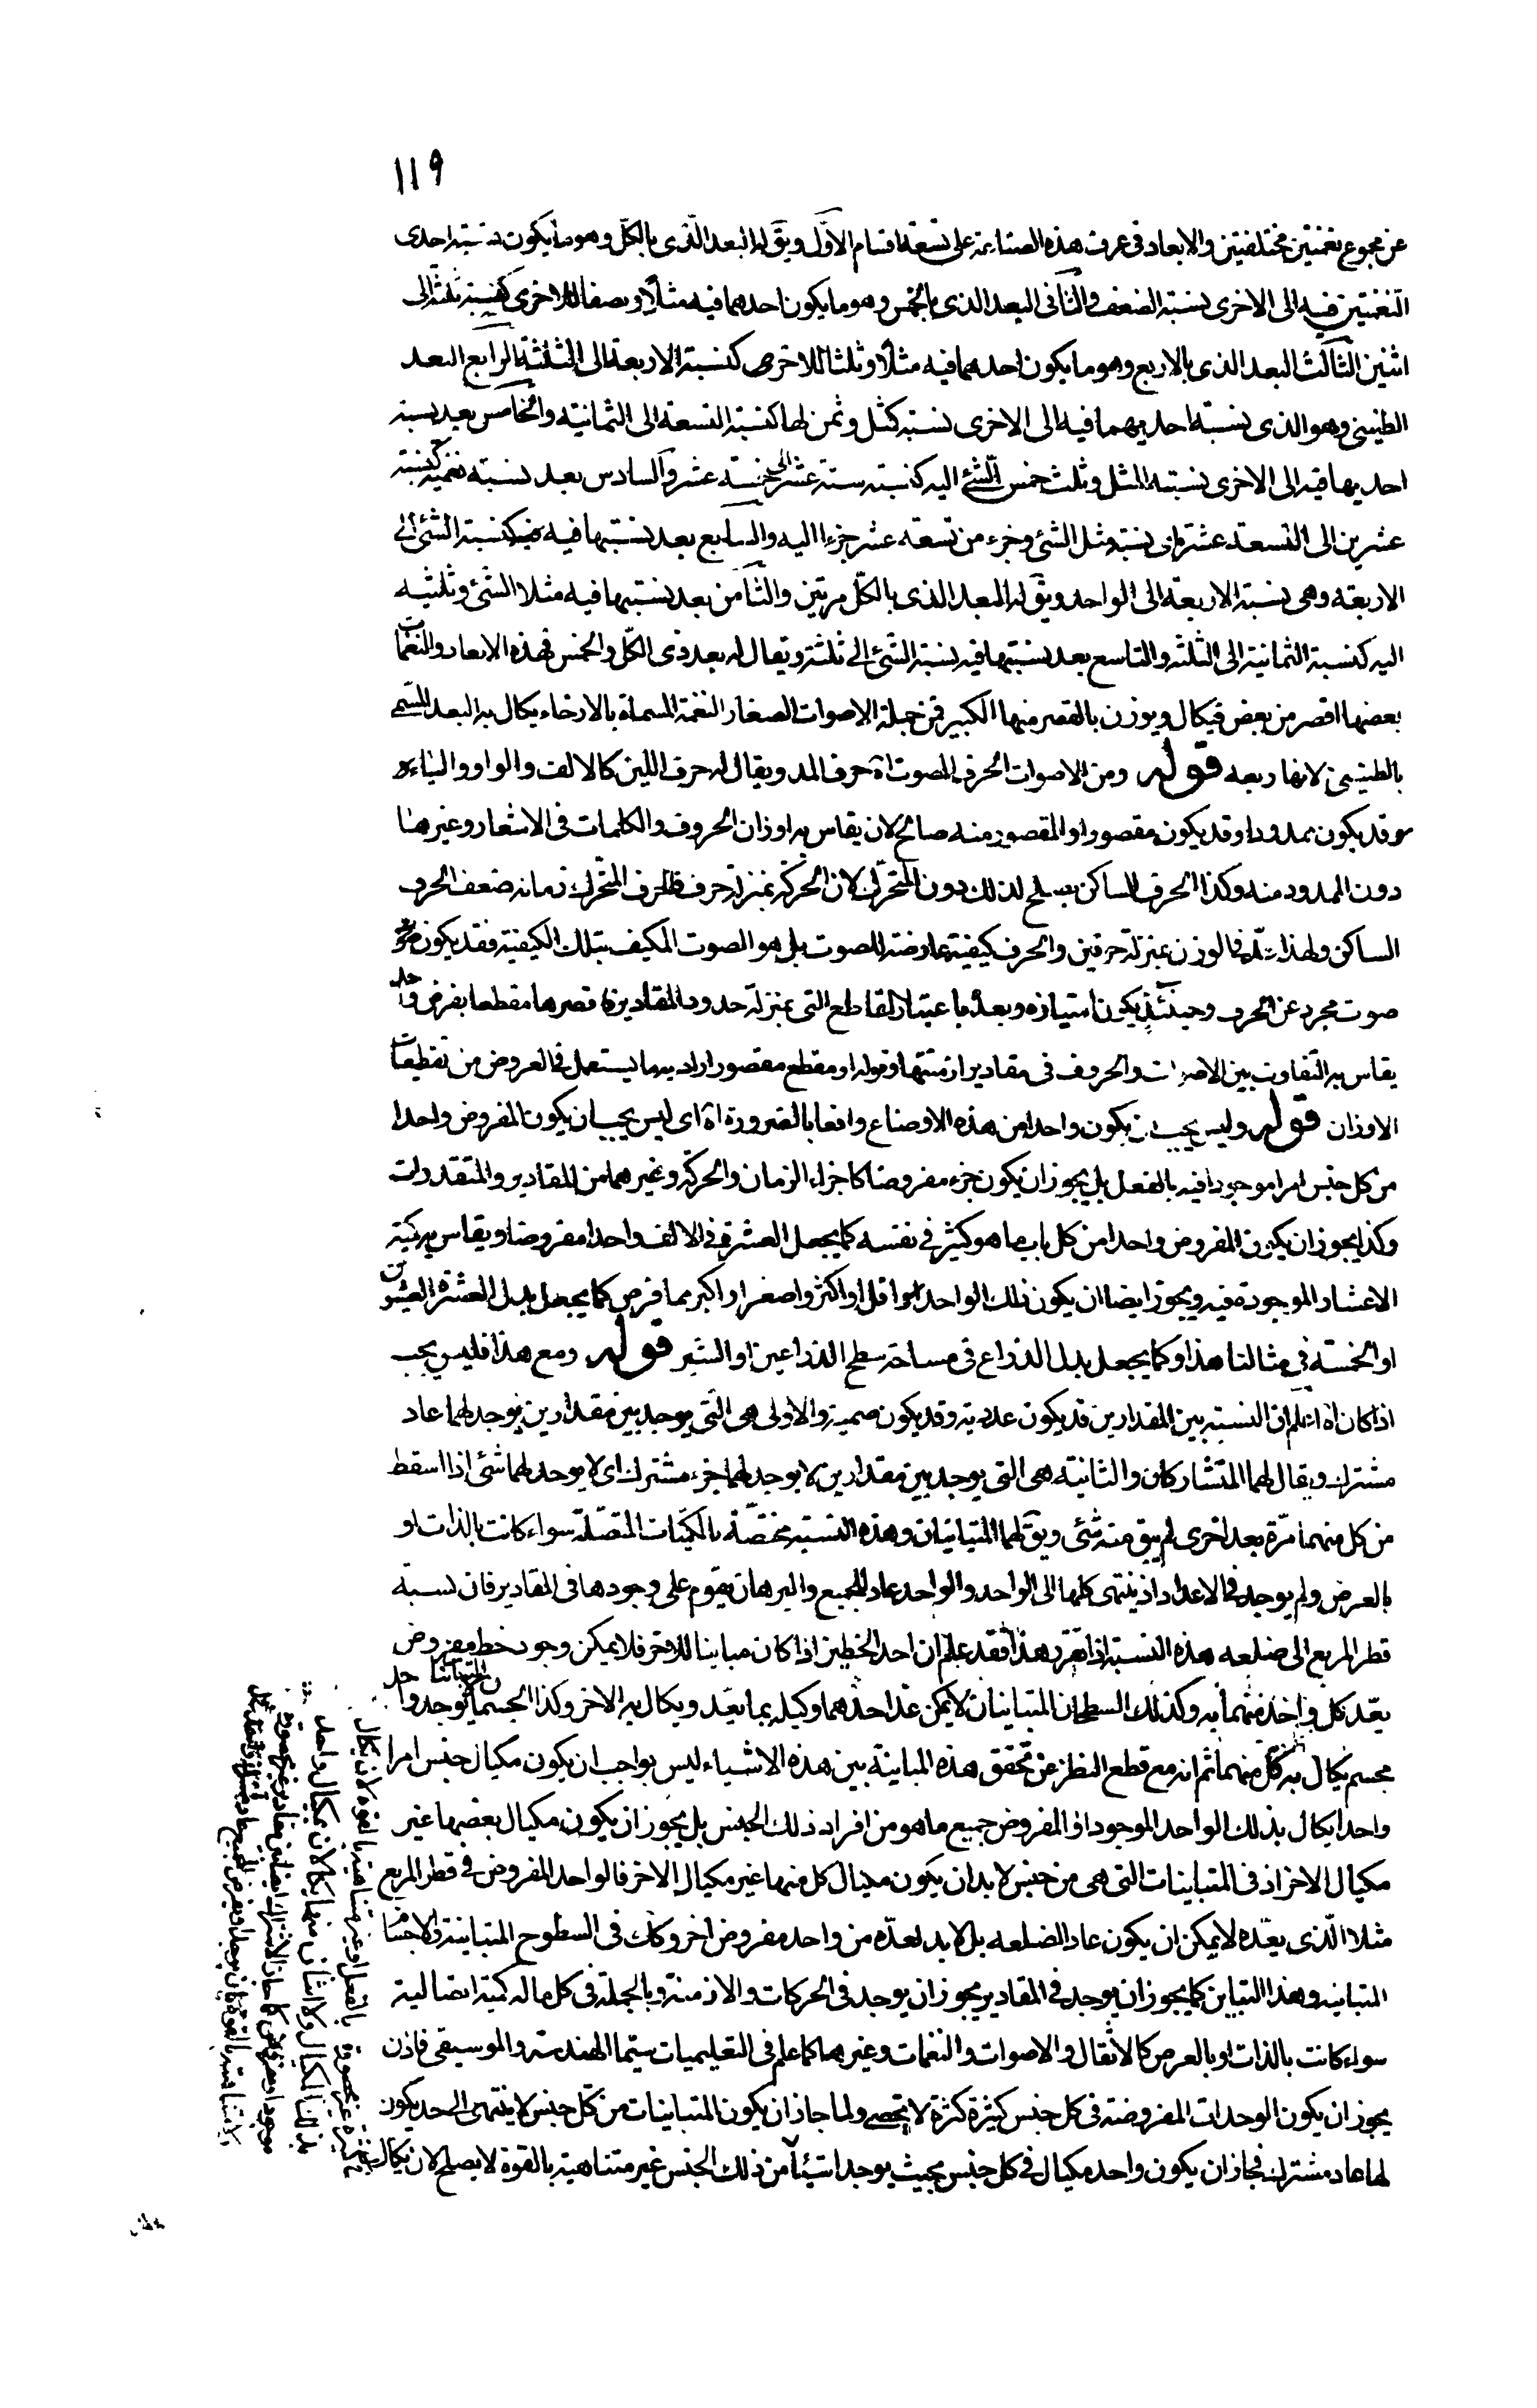 ١١٩
عن مجموع نغمتين مختلفتين والابعاد فى عرف هذه الصناعة على تسعة اقسام الاوّل ويق له البعد الّذى بالكلّ وهو ما يكون نسبته احدى
النغمتين فيه الى الاخرى نسبة الضعف والثانى البعد الذى بالخمس وهو ما يكون احدهما فيه مثلًا ونصفا للاخرى كنسبة ثلثة الى
اثنين الثالث البعد الذى بالاربع وهو ما يكون احدهما فيه مثلًا وثلثا للاخرى كنسبة الاربعة الى الثلثة الرابع البعد
الطنينى وهو الذى نسبته احديهما فيه الى الاخرى نسبته كمثل وثمن لها كنسبة التسعة الى الثمانية والخامس بعد نسبة
احديها فيه الى الاخرى نسبته المثل وثلث خمس الشئ اليه كنسبته ستة عشر الى خمسة عشر والسادس بعد نسبته نغمتيه كنسبة
عشرين الى التسعة عشر اى نسبة مثل الشئ وجزء من تسعة عشر جزءا اليه والسابع بعد نسبتها فيه كنسبة الشئ الى
الاربعة وهى نسبة الاربعة الى الواحد ويق له البعد الذى بالكلّ مرتين والثامن بعد نسبتها فيه مثلا الشئ وثلثيه
اليه كنسبة الثمانية الى الثلثة والتاسع بعد نسبتها فيه نسبة الشئ الى ثلثة ويقال له بعد ذى الكلّ والخمس فهذه الابعاد والنغمات
بعضها اقصر من بعض فيكال ويوزن بالقصر منها الكبير فمن جملة الاصوات الصغار النغمة المسماة بالارخاء يكال به البعد المسمّى
بالطنينى لانها ربعه قوله ومن الاصوات الحرف المصوت اة حرف المد ويقال له حرف اللين كالالف والواو والياء
وقد يكون ممدودا وقد يكون مقصورا والمقصور منه صالح لان يقاس به اوزان الحروف والكلمات فى الاشعار وغيرها
دون الممدود منه وكذا الحرف الساكن يصلح لذلك دون المتحرّك لان الحركة بمنزلة حرف فالحرف المتحرّك زمانه ضعف الحرف
الساكن ولهذا فى الوزن بمنزلة حرفين والحرف كيفية عارضة للصوت بل هو الصوت المكيف بتلك الكيفية فقد يكون
صوت مجرد عن الحرف وحينئذ يكون امتيازه وبعده باعتبار المقاطع التى بمنزلة حدود المقادير فاقصرها مقطعا يفرض واحد
يقاس به التفاوت بين الاصوات والحروف فى مقادير ازمنتها وقوله او مقطع مقصور اراد به ما يستعمل فى العروض من تقطيعات
الاوزان قوله وليس يجب ان يكون واحدا من هذه الاوضاع واقعا بالضرورة اة اى ليس يجب ان يكون المفروض واحدا
من كل جنس امرا موجودا فيه بالفعل بل يجوز ان يكون جزء مفروضا كاجزاء الزمان والحركة وغيرهما من المقادير والمتقدرات
وكذا يجوز ان يكون المفروض واحدا من كل باب ما هو كثير فى نفسه كما يجعل العشرة فى الالف واحدا مفروضا ويقاس به كمية
الاعشار الموجودة فيه ويجوز ايضا ان يكون ذلك الواحد اقل او اكثر واصغر او اكبر مما فرض كما يجعل بدل العشرة العشرون
او الخمسة فى مثالنا هذا وكما يجعل بدل الذراع فى مساحة سطح الذراعين او الشبر قوله ومع هذا فليس يجب
اذا كان اة اعلم ان النسبة بين المقدارين قد يكون عددية وقد يكون صمية والاولى هى التى يوجد بين مقدارين يوجد لهما عاد
مشترك ويقال لهما المتشاركان والثانية هى التى يوجد بين مقدارين لا يوجد لهما جزء مشترك اى لا يوجد لهما شئ اذا اسقط
من كل منهما مرّة بعد اخرى لم يبق منه شئ ويق لهما المتباينان وهذه النسبة مختصّة بالكميّات المتصلة سواء كانت بالذات او
بالعرض ولم يوجد فى الاعداد اذ ينتهى كلها الى الواحد والواحد عاد للجميع والبرهان يقوم على وجودها فى المقادير فان نسبة
قطر المربع الى ضلعه هذه النسبة اذا تقرر هذا فقد علم ان احد الخطين اذا كان مباينا للاخر فلا يمكن وجود خط مفروض
يعّد كل واحد منهما به وكذلك السطحان المتباينان لا يمكن عدّ احدهما وكيله بما يعّد ويكال به الاخر وكذا الجسمان المتباينان لا يوجد واحد
مجسم يكال به كلّ منهما ثم انه مع قطع النظر عن تحقق هذه المباينة بين هذه الاشياء ليس بواجب ان يكون مكيال جنس امرا
واحدا يكال بذلك الواحد الموجود او المفروض جميع ما هو من افراد ذلك الجنس بل يجوز ان يكون مكيال بعضها غير
مكيال الاخر اذ فى المتباينات التى هى من جنس لابد ان يكون مكيال كل منها غير مكيال الاخر فالواحد المفروض فى قطر المربع
مثلا الّذى يعّده لا يمكن ان يكون عاد الضلعه بل لابد لعدّه من واحد مفروض اخر وكك فى السطوح المتباينة والاجسام
المتباينة وهذا التباين كما يجوز ان يوجد فى المقادير يجوز ان يوجد فى الحركات والازمنة وبالجملة فى كل ماله كمية اتصالية
سواء كانت بالذات او بالعرض كالاثقال والاصوات والنغمات وغيرها كما علم فى التعليميات سيّما الهندسة والموسيقى فاذن
يجوز ان يكون الوحدات المفروضة فى كل جنس كثيرة كثرة لا تحصى ولما جاز ان يكون المتباينات من كل جنس لا ينتهى الى حد يكون
لها عاد مشترك فجاز ان يكون واحد مكيال فى كل جنس بحيث يوجد اشياء من ذلك الجنس غير متناهية بالقوة لا يصلح لان يكال